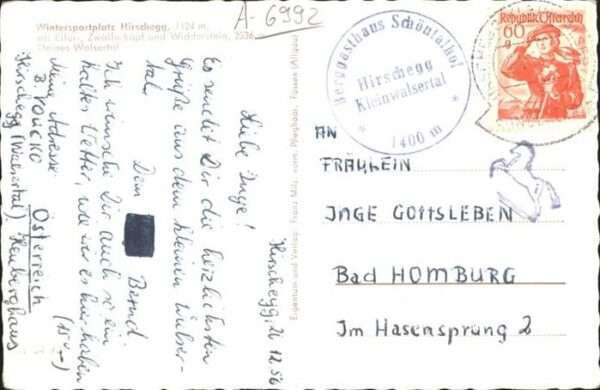 Wintersportplatz Hirschegg, 1124 m,
mit Elfer-, Zwölfer­kopf und Widderstein, 2536 m
Kleines Walsertal
A-6992
Berggasthaus Schöntalhof
Hirschegg
Kleinwalsertal
1400 m
Republik Österreich
60
g
Hirschegg, 26.12.56
Liebe Inge!
Es sendet Dir die herzlichsten
Grüße aus dem kleinen Walser-
tal
Dein Bernd
Ich wünsche Dir auch so ein
kaltes Wetter, wie wir es hier haben
Meine Adresse
B.
Österreich
Hirschegg (Walsertal),
AN
FRÄULEIN
INGE GOTTSLEBEN
BAD HOMBURG
Im Hasensprung 2